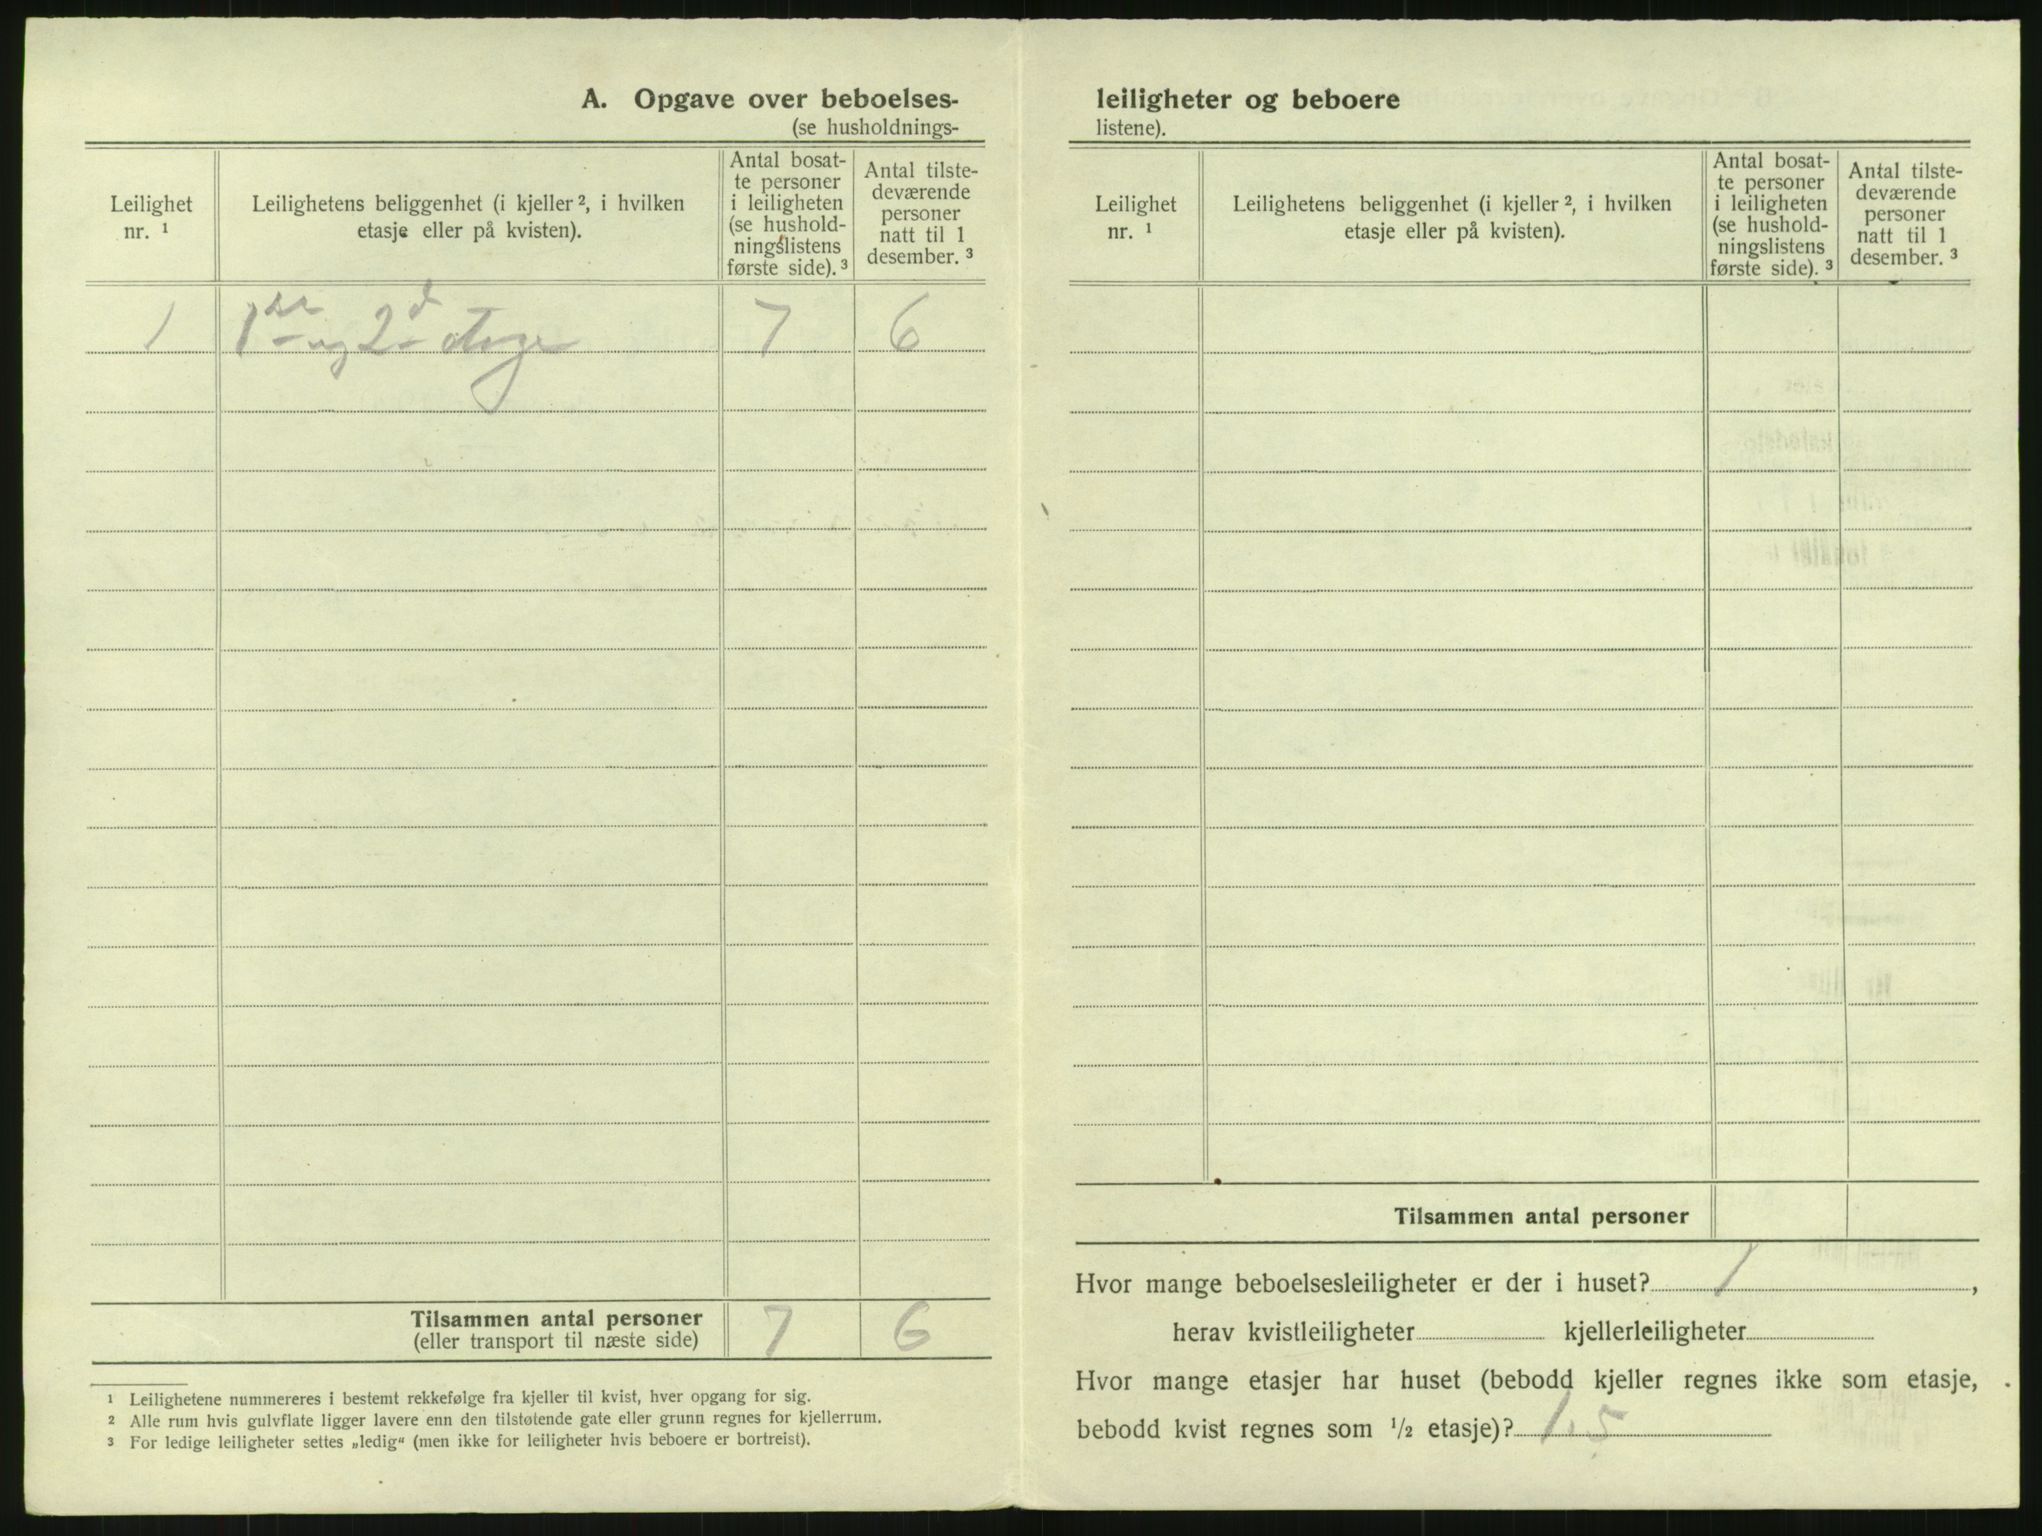 A. Opgave over beboelses-
(se husholdnings-
Leilighet
nr. ¹
Leilighetens beliggenhet (i kjeller ², i hvilken
etasje eller på kvisten).
Antal bosat-
te personer
i leiligheten
(se hushold-
ningslistens
første side). ³
Antal tilste-
deværende
personer
natt til 1
desember. ³
1 1ste og 2d etage 7 6
Tilsammen antal personer 7 6
(eller transport til næste side)
¹ Leilighetene nummereres i bestemt rekkefølge fra kjeller til kvist, hver opgang for sig.
² Alle rum hvis gulvflate ligger lavere enn den tilstøtende gate eller grunn regnes for kjellerrum.
³ For ledige leiligheter settes „ledig“ (men ikke for leiligheter hvis beboere er bortreist).
leiligheter og beboere
listene).
Leilighet
nr. ¹
Leilighetens beliggenhet (i kjeller ², i hvilken
etasje eller på kvisten).
Antal bosat-
te personer
i leiligheten
(se hushold-
ningslistens
første side). ³
Antal tilste-
deværende
personer
natt til 1
desember. ³
Tilsammen antal personer
Hvor mange beboelsesleiligheter er der i huset? 1,
herav kvistleiligheter kjellerleiligheter
Hvor mange etasjer har huset (bebodd kjeller regnes ikke som etasje,
bebodd kvist regnes som ½ etasje)? 1.5